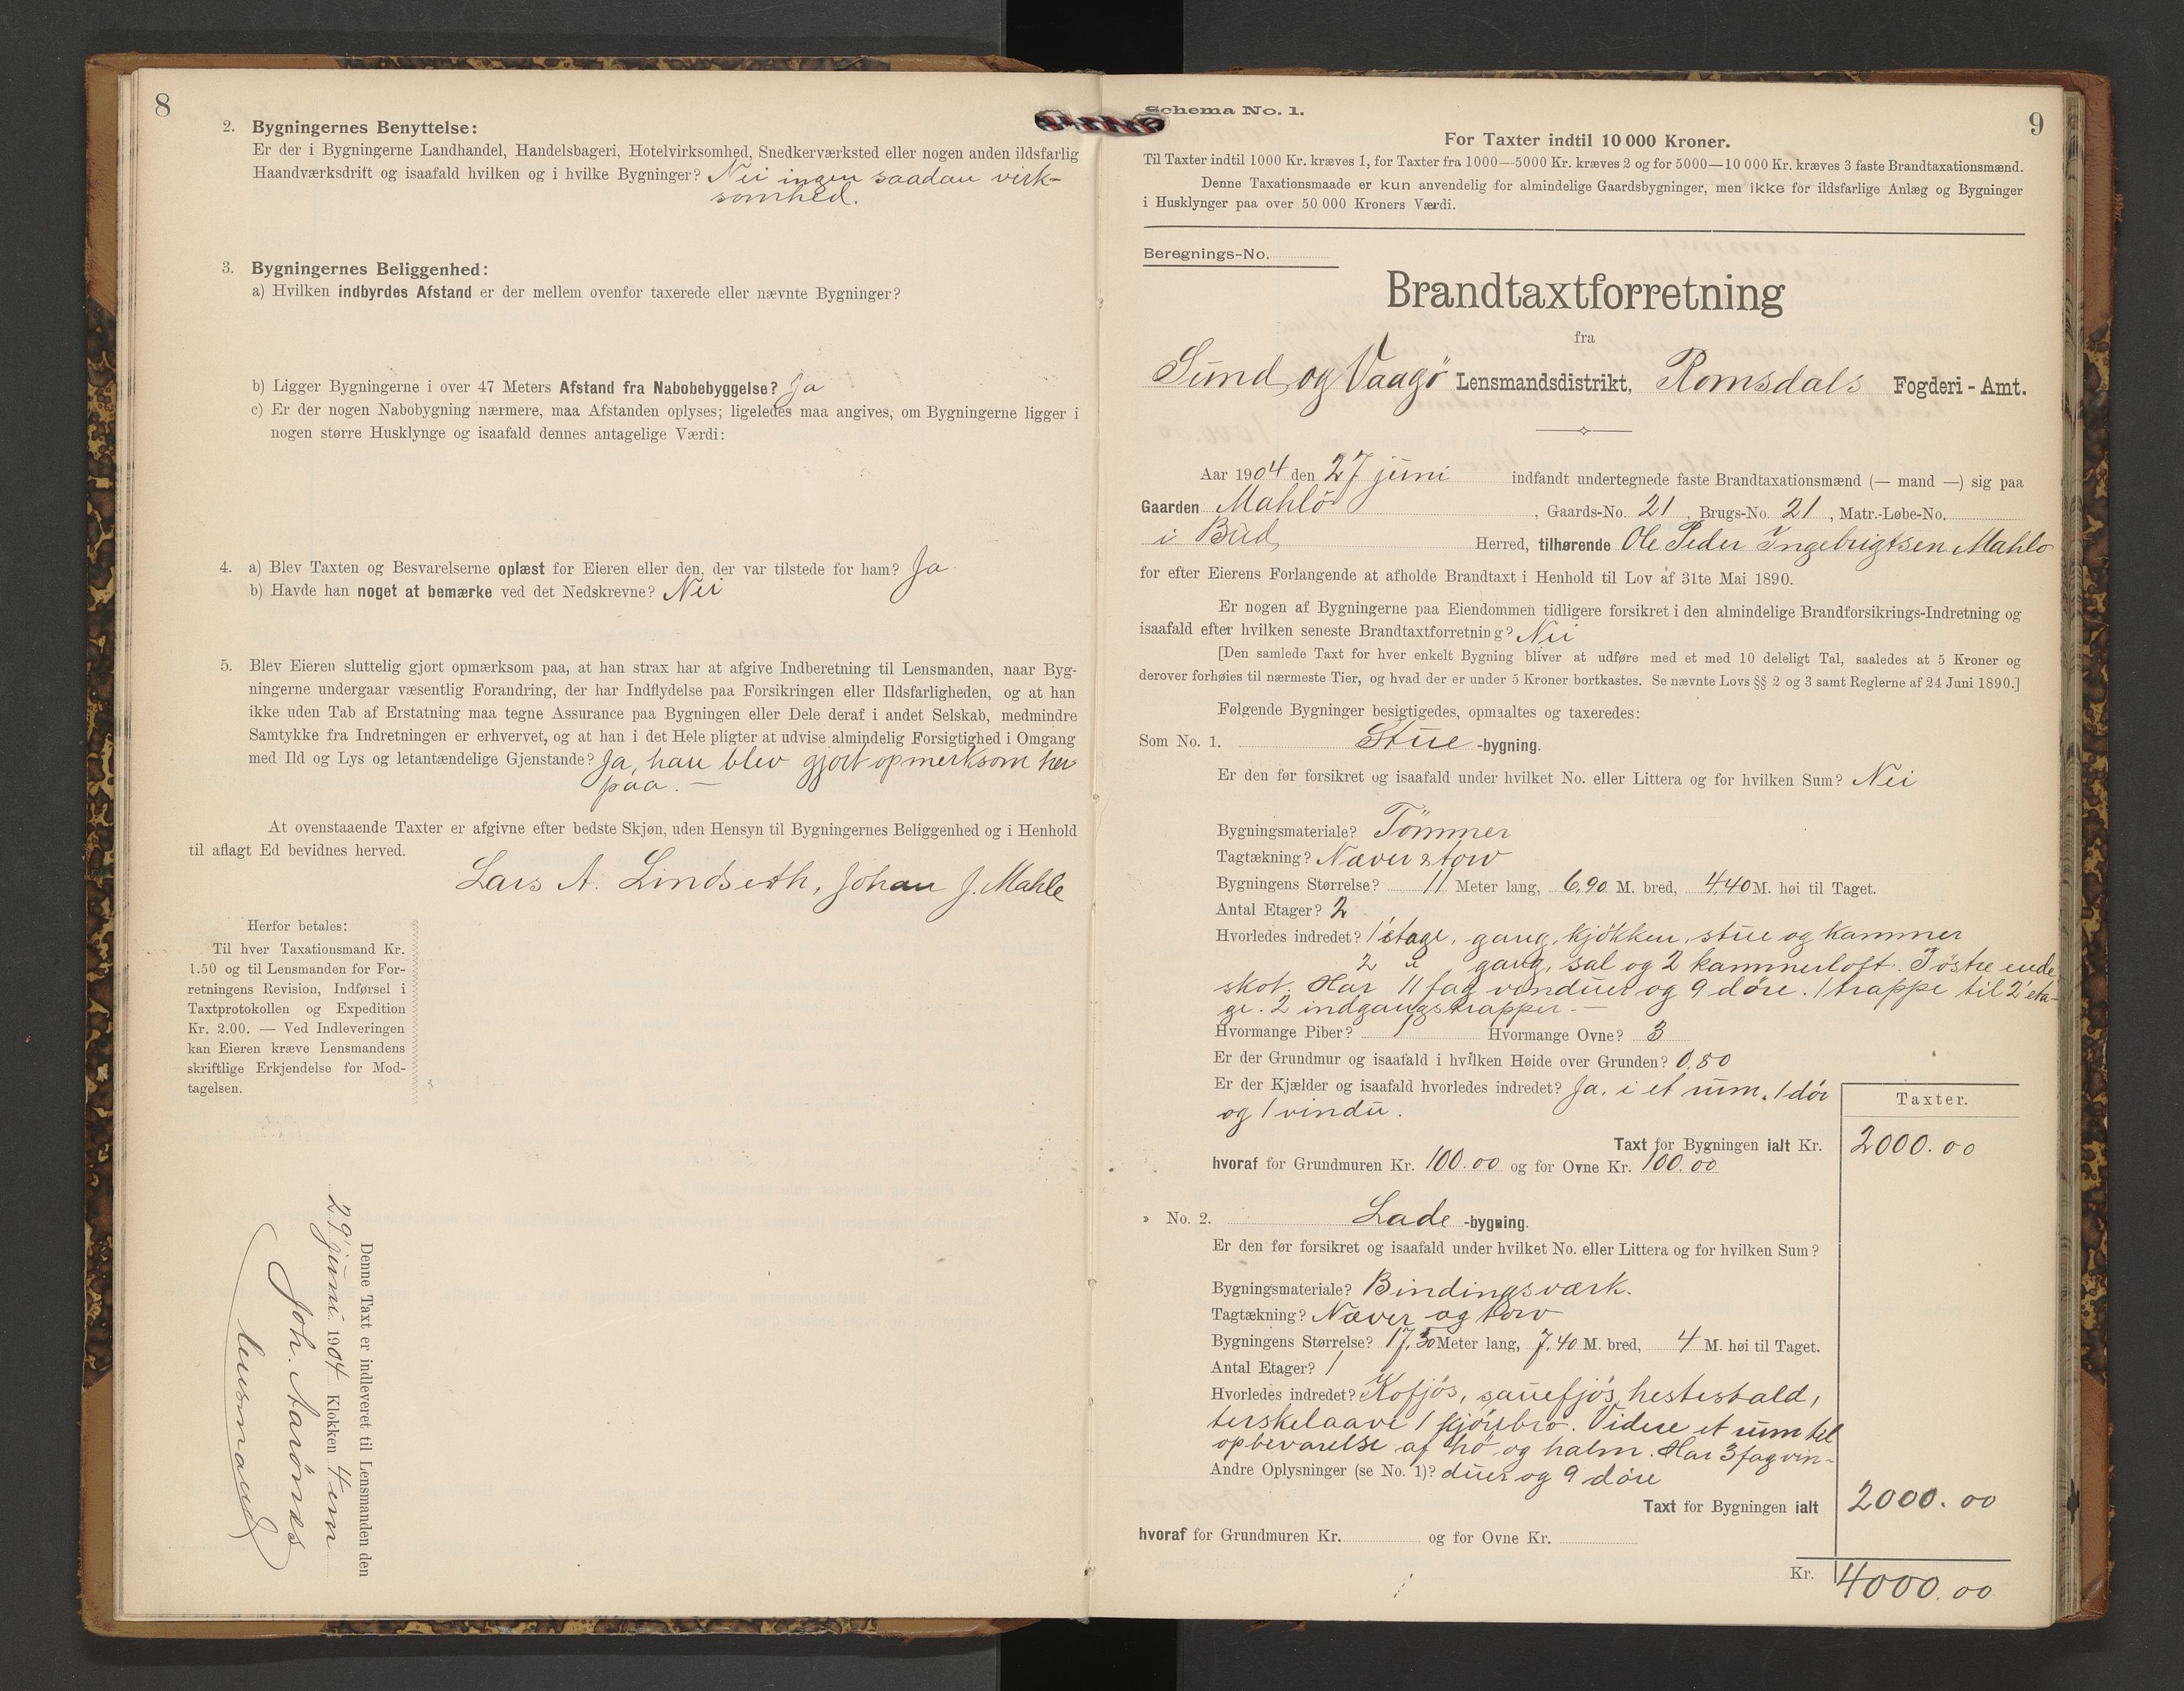 8
2. Bygningernes Benyttelse:
Er der i Bygningerne Landhandel, Handelsbageri, Hotelvirksomhed, Snedkerværksted eller nogen anden ildsfarlig
Haandværksdrift og isaafald hvilken og i hvilke Bygninger? Nei ingen saadan virk-
somhed.
3. Bygningernes Beliggenhed:
a) Hvilken indbyrdes Afstand er der mellem ovenfor taxerede eller nævnte Bygninger?
b) Ligger Bygningerne i over 47 Meters Afstand fra Nabobebyggelse? Ja
c) Er der nogen Nabobygning nærmere, maa Afstanden oplyses; ligeledes maa angives, om Bygningerne ligger i
nogen større Husklynge og isaafald dennes antagelige Værdi:
4. a) Blev Taxten og Besvarelserne oplæst for Eieren eller den, der var tilstede for ham? Ja
b) Havde han noget at bemærke ved det Nedskrevne? Nei
5. Blev Eieren sluttelig gjort opmærksom paa, at han strax har at afgive Indberetning til Lensmanden, naar Byg-
ningerne undergaar væsentlig Forandring, der har Indflydelse paa Forsikringen eller Ildsfarligheden, og at han
ikke uden Tab af Erstatning maa tegne Assurance paa Bygningen eller Dele deraf i andet Selskab, medmindre
Samtykke fra Indretningen er erhvervet, og at han i det Hele pligter at udvise almindelig Forsigtighed i Omgang
med Ild og Lys og letantændelige Gjenstande? Ja, han blev gjort opmerksom her
paa. —
At ovenstaaende Taxter er afgivne efter bedste Skjøn, uden Hensyn til Bygningernes Beliggenhed og i Henhold
til aflagt Ed bevidnes herved.
Lars A. Lindseth, Johan J. Mahle
Herfor betales:
Til hver Taxationsmand Kr.
1.50 og til Lensmanden for For-
retningens Revision, Indførsel i
Taxtprotokollen og Expedition
Kr. 2.00. — Ved Indleveringen
kan Eieren kræve Lensmandens
skriftlige Erkjendelse for Mod-
tagelsen.
Denne Taxt er indleveret til Lensmanden den
29 juni 1904 Klokken 4 em
Joh. Aarönæs
lensmand
9
Schema No. 1.
For Taxter indtil 10 000 Kroner.
Til Taxter indtil 1000 Kr. kræves 1, for Taxter fra 1000—5000 Kr. kræves 2 og for 5000—10 000 Kr. kræves 3 faste Brandtaxationsmænd.
Denne Taxationsmaade er kun anvendelig for almindelige Gaardsbygninger, men ikke for ildsfarlige Anlæg og Bygninger
i Husklynger paa over 50 000 Kroners Værdi.
Beregnings-No.
Brandtaxtforretning
fra
Sund og Vaagö Lensmandsdistrikt, Romsdals Fogderi - Amt.
Aar 1904 den 27 juni indfandt undertegnede faste Brandtaxationsmænd (— mand —) sig paa
Gaarden Mahlö, Gaards-No. 21, Brugs-No. 21, Matr.-Løbe-No.
i Bud Herred, tilhørende Ole Peder Ingebrigtsen Mahlo
for efter Eierens Forlangende at afholde Brandtaxt i Henhold til Lov af 31te Mai 1890.
Er nogen af Bygningerne paa Eiendommen tidligere forsikret i den almindelige Brandforsikrings-Indretning og
isaafald efter hvilken seneste Brandtaxtforretning? Nei
[Den samlede Taxt for hver enkelt Bygning bliver at udføre med et med 10 deleligt Tal, saaledes at 5 Kroner og
derover forhøies til nærmeste Tier, og hvad der er under 5 Kroner bortkastes. Se nævnte Lovs §§ 2 og 3 samt Reglerne af 24 Juni 1890.]
Følgende Bygninger besigtigedes, opmaaltes og taxeredes:
Som No. 1. Stue -bygning.
Er den før forsikret og isaafald under hvilket No. eller Littera og for hvilken Sum? Nei
Bygningsmateriale? Tömmer
Tagtækning? Næver & torv
Bygningens Størrelse? 11 Meter lang, 6,90 M. bred, 4,40 M. høi til Taget.
Antal Etager? 2
Hvorledes indredet? 1 étage, gang, kjökken, stue og kammer
2 " gang, sal og 2 kammerloft. I östre ende
skot. Har 11 fag vinduer og 9 döre. 1 trappe til 2' eta-
ge. 2 indgangstrapper. —
Hvormange Piber? 1 Hvormange Ovne? 3
Er der Grundmur og isaafald i hvilken Høide over Grunden? 0,80
Er der Kjælder og isaafald hvorledes indredet? Ja, i et rum. 1 dör
og 1 vindu.
Taxter.
Taxt for Bygningen ialt Kr. 2000.00
hvoraf for Grundmuren Kr. 100.00 og for Ovne Kr. 100.00
» No. 2. Lade -bygning.
Er den før forsikret og isaafald under hvilket No. eller Littera og for hvilken Sum?
Bygningsmateriale? Bindingsværk.
Tagtækning? Næver og torv
Bygningens Størrelse? 17,50 Meter lang, 7,40 M. bred, 4 M. høi til Taget.
Antal Etager? 1
Hvorledes indredet? Kofjös, sauefjös, hestestald,
terskelaave 1 kjörebro. Videre et rum til
opbevarelse af hö og halm. Har 3 fag vin-
Andre Oplysninger (se No. 1)? duer og 9 döre
Taxt for Bygningen ialt 2000.00
hvoraf for Grundmuren Kr. og for Ovne Kr.
Kr. 4000.00